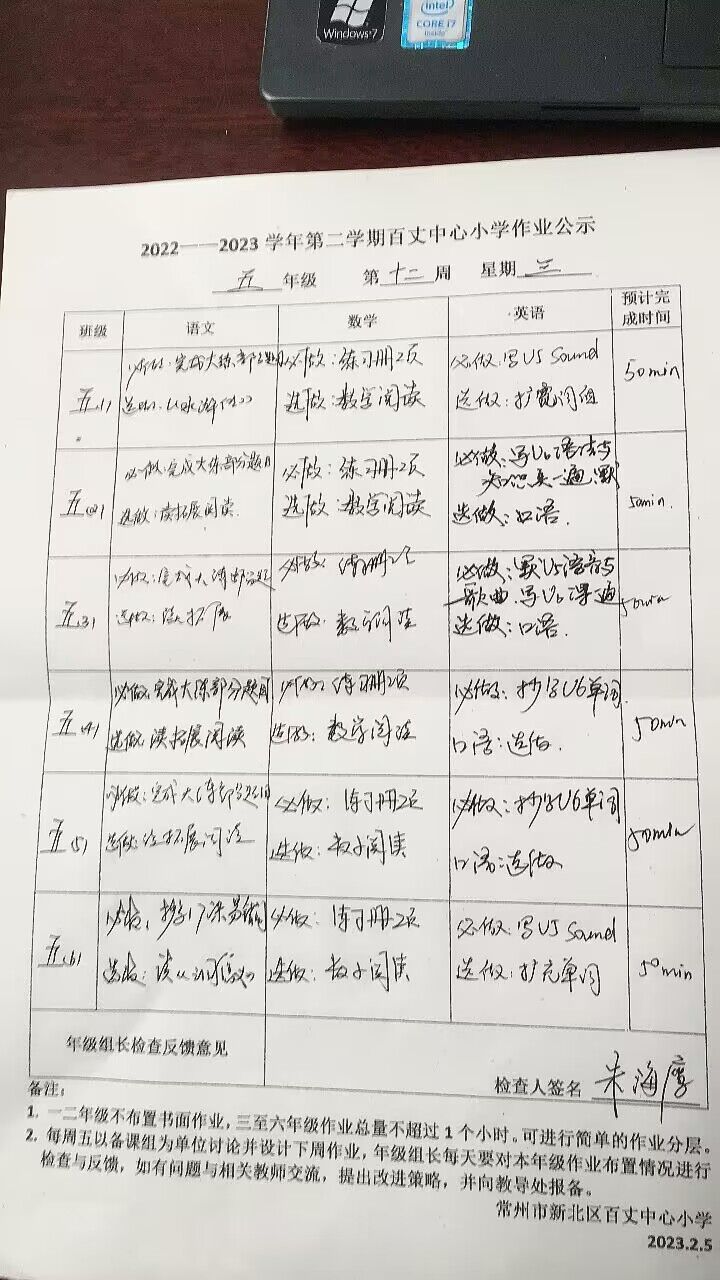 Windows 7
intel
CORE i7
inside
2022——2023 学年第二学期百丈中心小学作业公示
五 年级 第 十二 周 星期 三
班级 语文 数学 英语 预计完成时间
五(1) 必做:完成大练部分题目 必做:练习册2页 必做:写U5 Sound 50min
选做:《水浒传》 选做:数学阅读 选做:扩充词组
五(2) 必做:完成大练部分题目 必做:练习册2页 必做:写U6语法与 50min
知识点一遍,默
选做:读拓展阅读. 选做:数学阅读 选做:口语.
五(3) 必做:完成大练部分题 必做:练习册2页 必做:默U5语音与 50min
歌曲.写U6课
选做: 拓展 选做:数学阅读 选做:口语.
五(4) 必做:完成大练部分题目 必做:练习册2页 必做:抄写U6单词 50min
选做:读拓展阅读 选做:数学阅读 口语:选做.
五(5) 必做:完成大练部分题目 必做:练习册2页 必做:抄写U6单词 50min
选做:读拓展阅读 选做:数学阅读 口语:选做
五(6) 必做:抄写17课 必做:练习册2页 必做:写U5 Sound 50min
选做:读 选做:数学阅读 选做:扩充单词
年级组长检查反馈意见
检查人签名 朱海
备注:
1. 一二年级不布置书面作业,三至六年级作业总量不超过 1 个小时。可进行简单的作业分层。
2. 每周五以备课组为单位讨论并设计下周作业,年级组长每天要对本年级作业布置情况进行
检查与反馈,如有问题与相关教师交流,提出改进策略,并向教导处报备。
常州市新北区百丈中心小学
2023.2.5